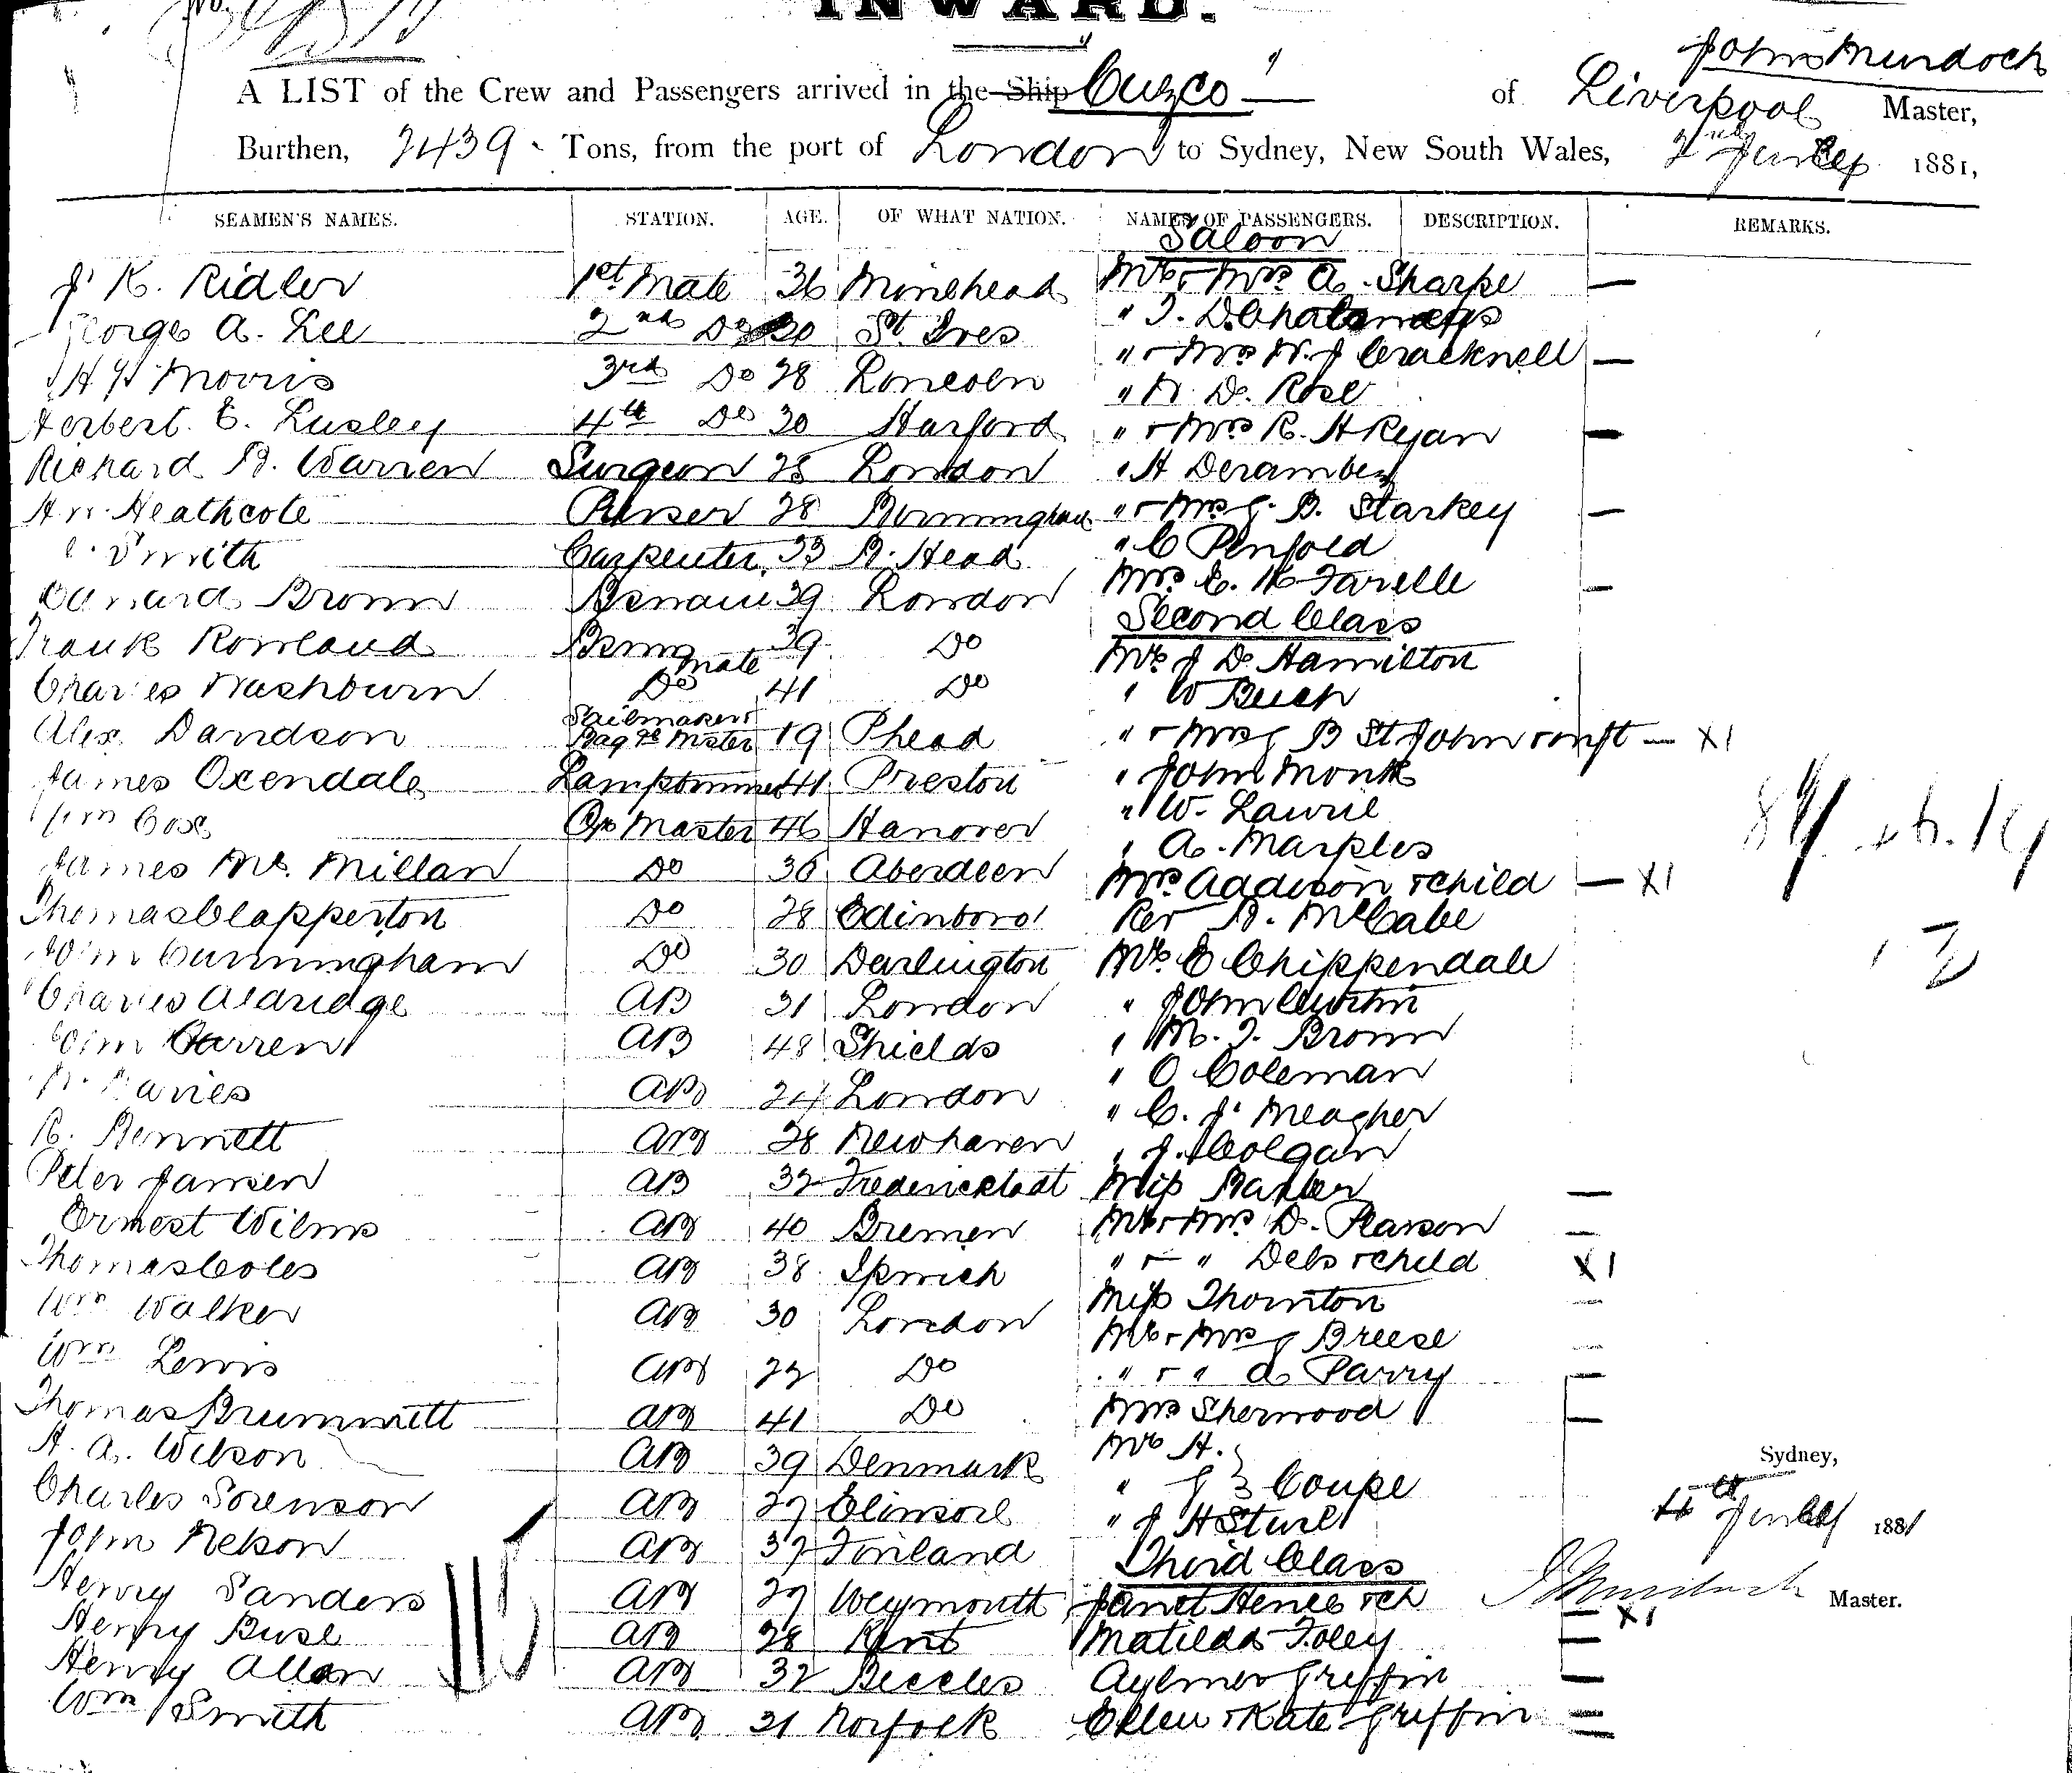 INWARD.
John Murdoch
A LIST of the Crew and Passengers arrived in the Ship Cuzco of Liverpool Master,
Burthen, 2439 Tons, from the port of London to Sydney, New South Wales, 2nd July 1881,
SEAMEN'S NAMES. STATION. AGE. OF WHAT NATION. NAMES OF PASSENGERS. DESCRIPTION. REMARKS.
Saloon
J. K. Ridler 1st Mate 36 Minehead Mr & Mrs A. Sharpe —
George A. Lee 2nd Do 30 St. Ives " T. D.
H Morris 3rd Do 28 Lincoln " & Mrs W. J Cracknell —
" N. D. Rose
Herbert E. Lusley 4th Do 20 Harford " & Mrs R. H Ryan —
Richard H. Warren Surgeon 28 London " H Derambey
Hy. Heathcote Purser 28 Birmingham " & Mrs G. B. Starkey —
Smith Carpenter 33 B. Head " C Penfold
Edward Brown Bsman 39 London Mrs E. K Farelle —
Second Class
Frank Rowland Bsmn Mate 39 Do Mr J D. Hamilton
Charles Washburn Do 41 Do " W Buch
Alex Davidson Sailmaker & Bagge Master 19 Phead " & Mrs G B St John — X1
James Oxendale Lamptrimmer 41 Preston " John Monk
" W. Laurie
Wm Cox Qr Master 46 Hanover " A. Marples
James Mc. Millan Do 36 Aberdeen Mrs Addison & child — X1
Thomas Clapperton Do 28 Edinboro' Rev A. McCabe
Wm Cunningham Do 30 Darlington Mr E Chippendale
Charles Aldridge AB 31 London " John Curtin
Wm Warren AB 48 Shields " M. T. Brown
Davies AB 24 London " O Coleman
" C. J. Meagher
R. Bennett AB 28 Newhaven " J. Colgan
Peter Jansen AB 32 Frederickstadt Miss Baxter —
Ernest Wilms AB 40 Bremen Mr & Mrs D. Pearson —
Thomas Coles AB 38 Ipswich " & " Debs & child X1
Miss Thornton —
Wm Walker AB 30 London Mr & Mrs G Breese —
Wm Lewis AB 22 Do " & " A Parry —
Thomas Brummett AB 41 Do Mrs Sherwood —
H. A. Wilson AB 39 Denmark Mr H.
Sydney,
Charles Sorenson AB 27 Elinsore " G } Coupe
" J H Sturt
4th July 1881
John Nelson AB 37 Finland Third Class
Henry Sanders AB 27 Weymouth Janet Hence & ch — X1
J Murdoch Master.
Henry Buse AB 28 Kent Matilda Foley —
Henry Allan AB 32 Beccles Aylmer Griffin —
Wm Smith AB 21 Norfolk Ellen & Kate Griffin =